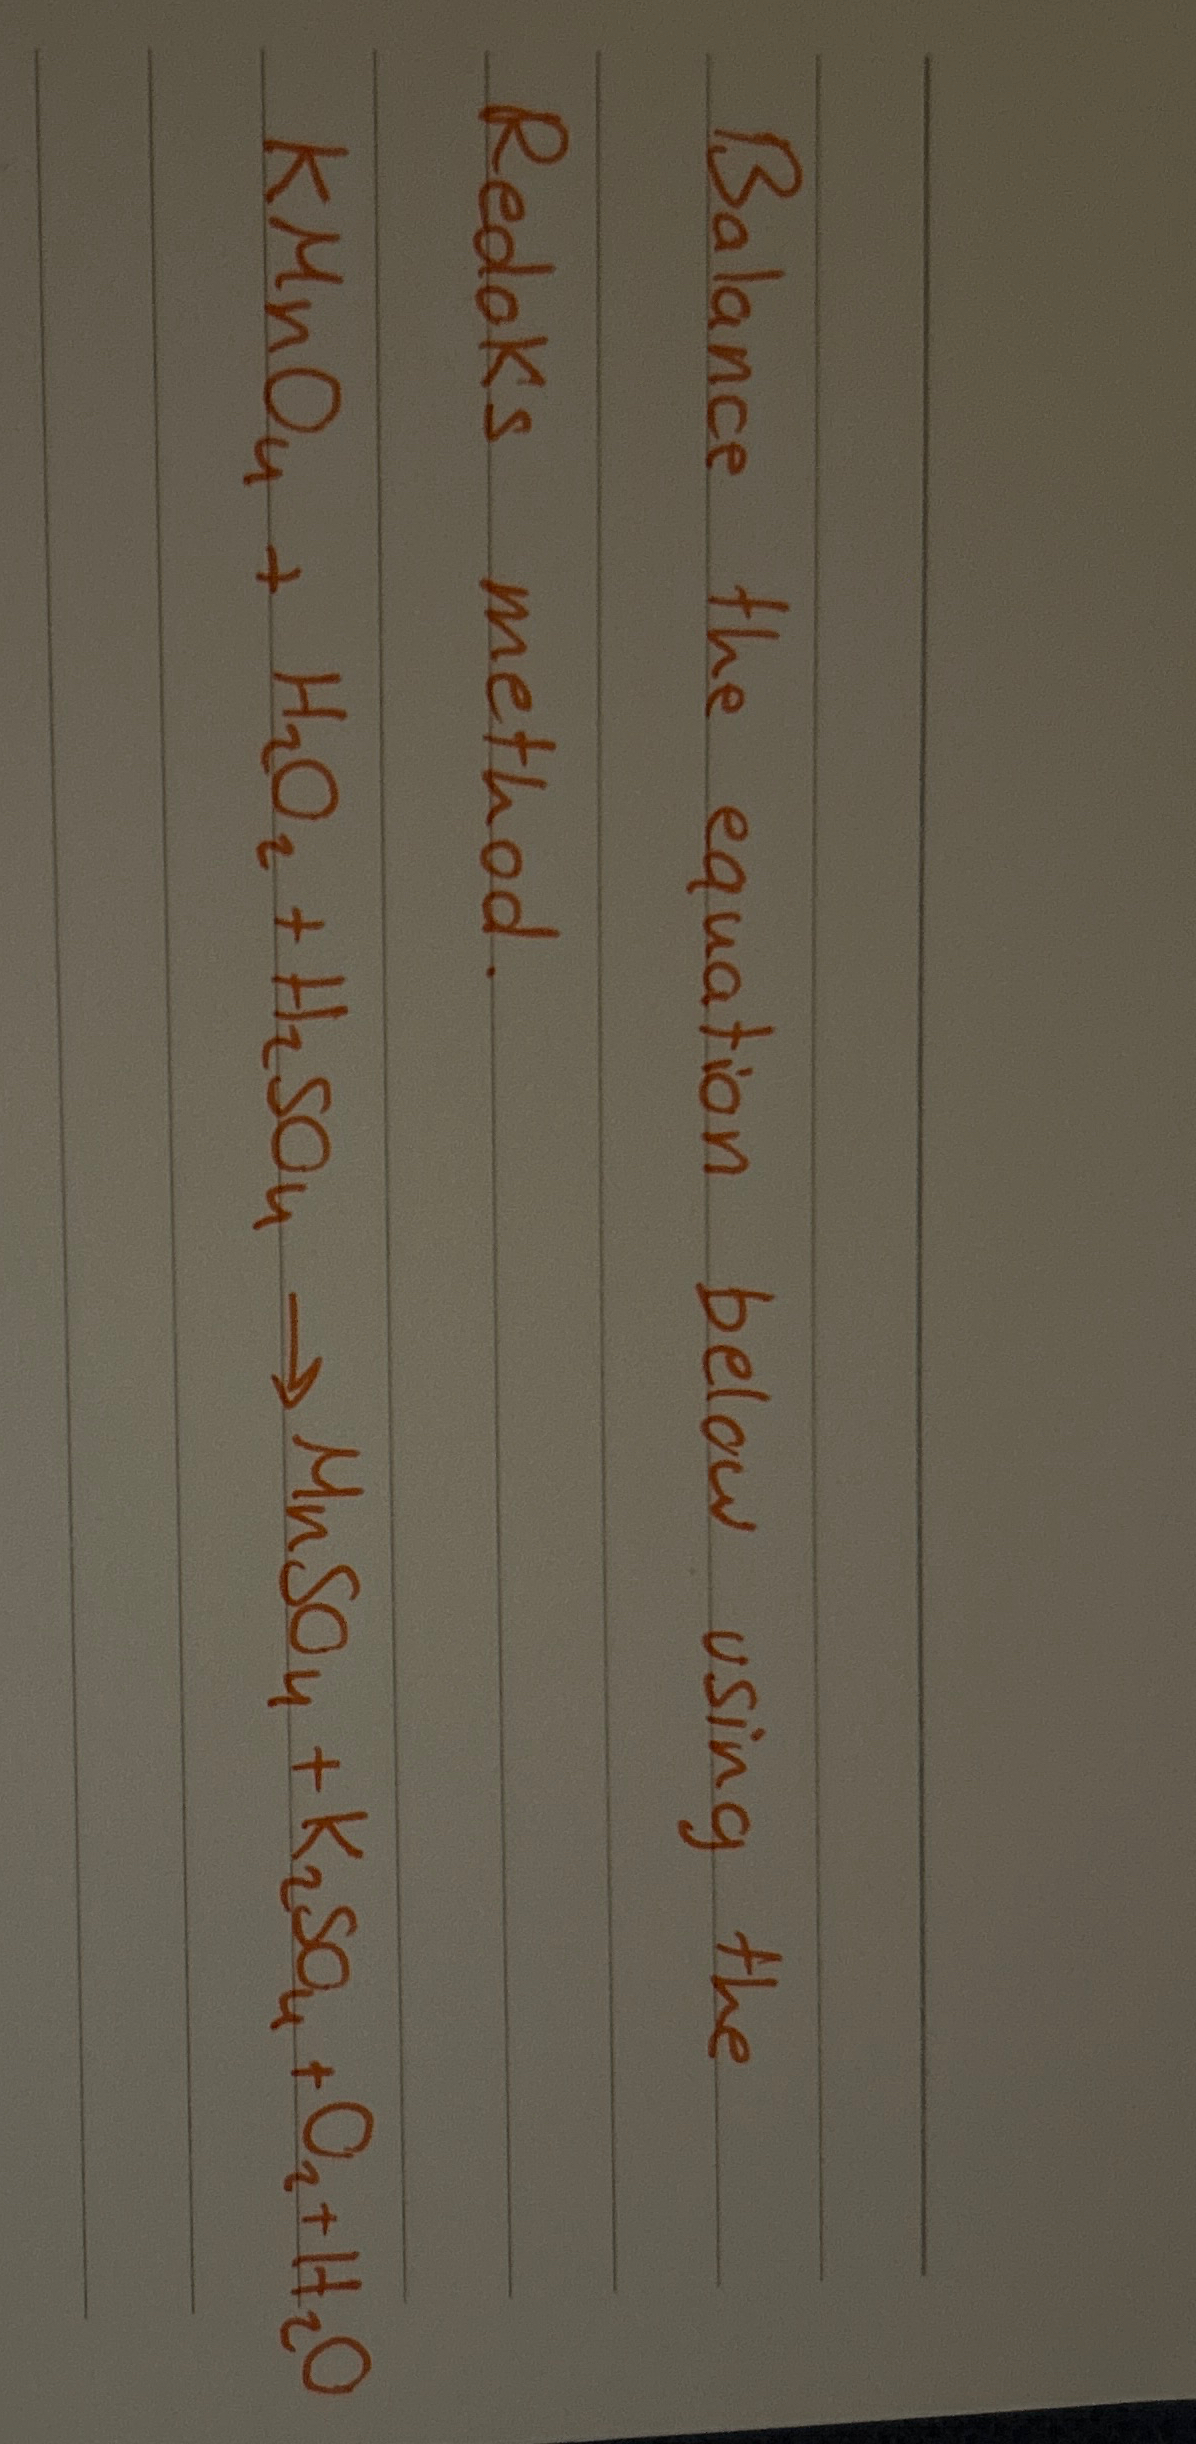 Balance the equation below using the
Redoks method.
KMnO₄ + H₂O₂ + H₂SO₄ → MnSO₄ + K₂SO₄ + O₂ + H₂O